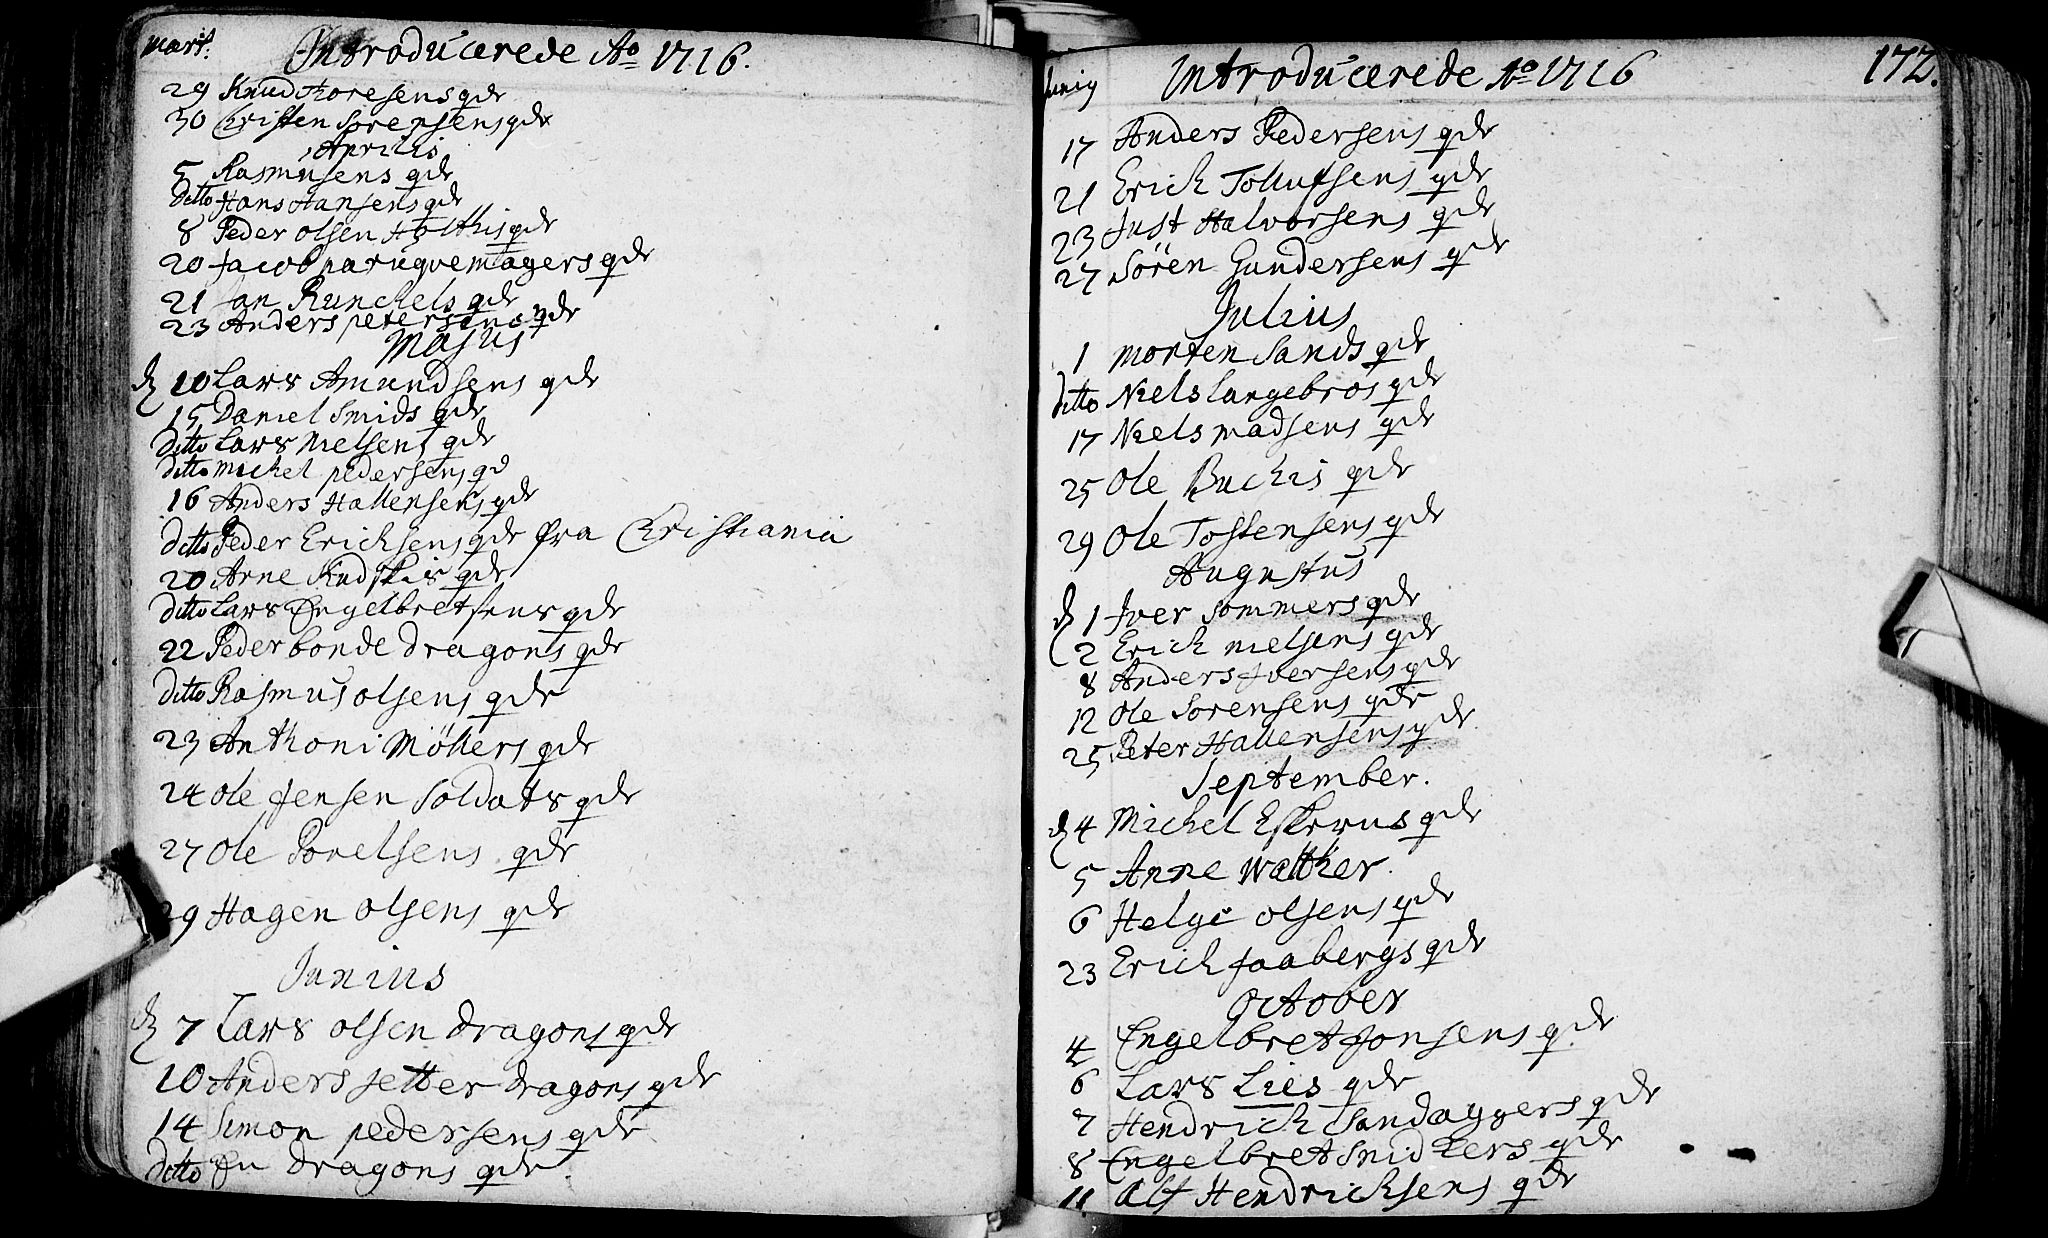 Marti. Introducerede Ao 1716.
29 Knud Thoresens qde
30 Christen Sørensens qde
Aprilis
5 Rasmusens qde
ditto Hans Hansens qde
8 Peder Olsen Holthis qde
20 Jacob paruqvemagers qde
21 Jan Runckels qde
23 Anders petersens qde
Majus
d 10 Lars Amundsens qde
15 Daniel Smids qde
ditto Lars Nielsens qde
ditto Michel pedersens qd
16 Anders Hallensens qde
ditto Peder Ericksens qde fra Christiania
20 Arne qde
ditto Lars Engelbretsens qde
22 Peder bonde dragons qde
ditto Rasmus olsens qde
23 Anthoni Möllers qde
24 Ole Jensen Soldats qde
27 Ole Porelsens qde
29 Hagen Olsens qde
Junius
d 7 Lars olsen dragons qde
10 Anders setter dragons qde
14 Simon pedersens qde
ditto En dragons qde
Junig Introducerede Ao 1716 172.
17 Anders Pedersens qde
21 Erich Tollufsens qde
23 Just Halvorsens qde
27 Sören Gundersens qde
Julius
1 Morten Sands qde
ditto Niels Langebros qde
17 Niels madsens qde
25 Ole Buchis qde
29 Ole Tostensens qde
Augustus
d 1 Iver Sommers qde
2 Erich nielsens qde
8 Anders Iversens qde
12 Ole Sorensens qde
25 Peter Hallensens qde
September.
d 4 Michel qde
5 Anne Walther.
6 Helge olsens qde
23 Erich faabergs qde
October
4 Engelbret Jonsens qde
6 Lars Lies qde
7 Hendrich Sandaggers qde
8 Engelbret Snidkers qde
11 Alf Hendricksens qde